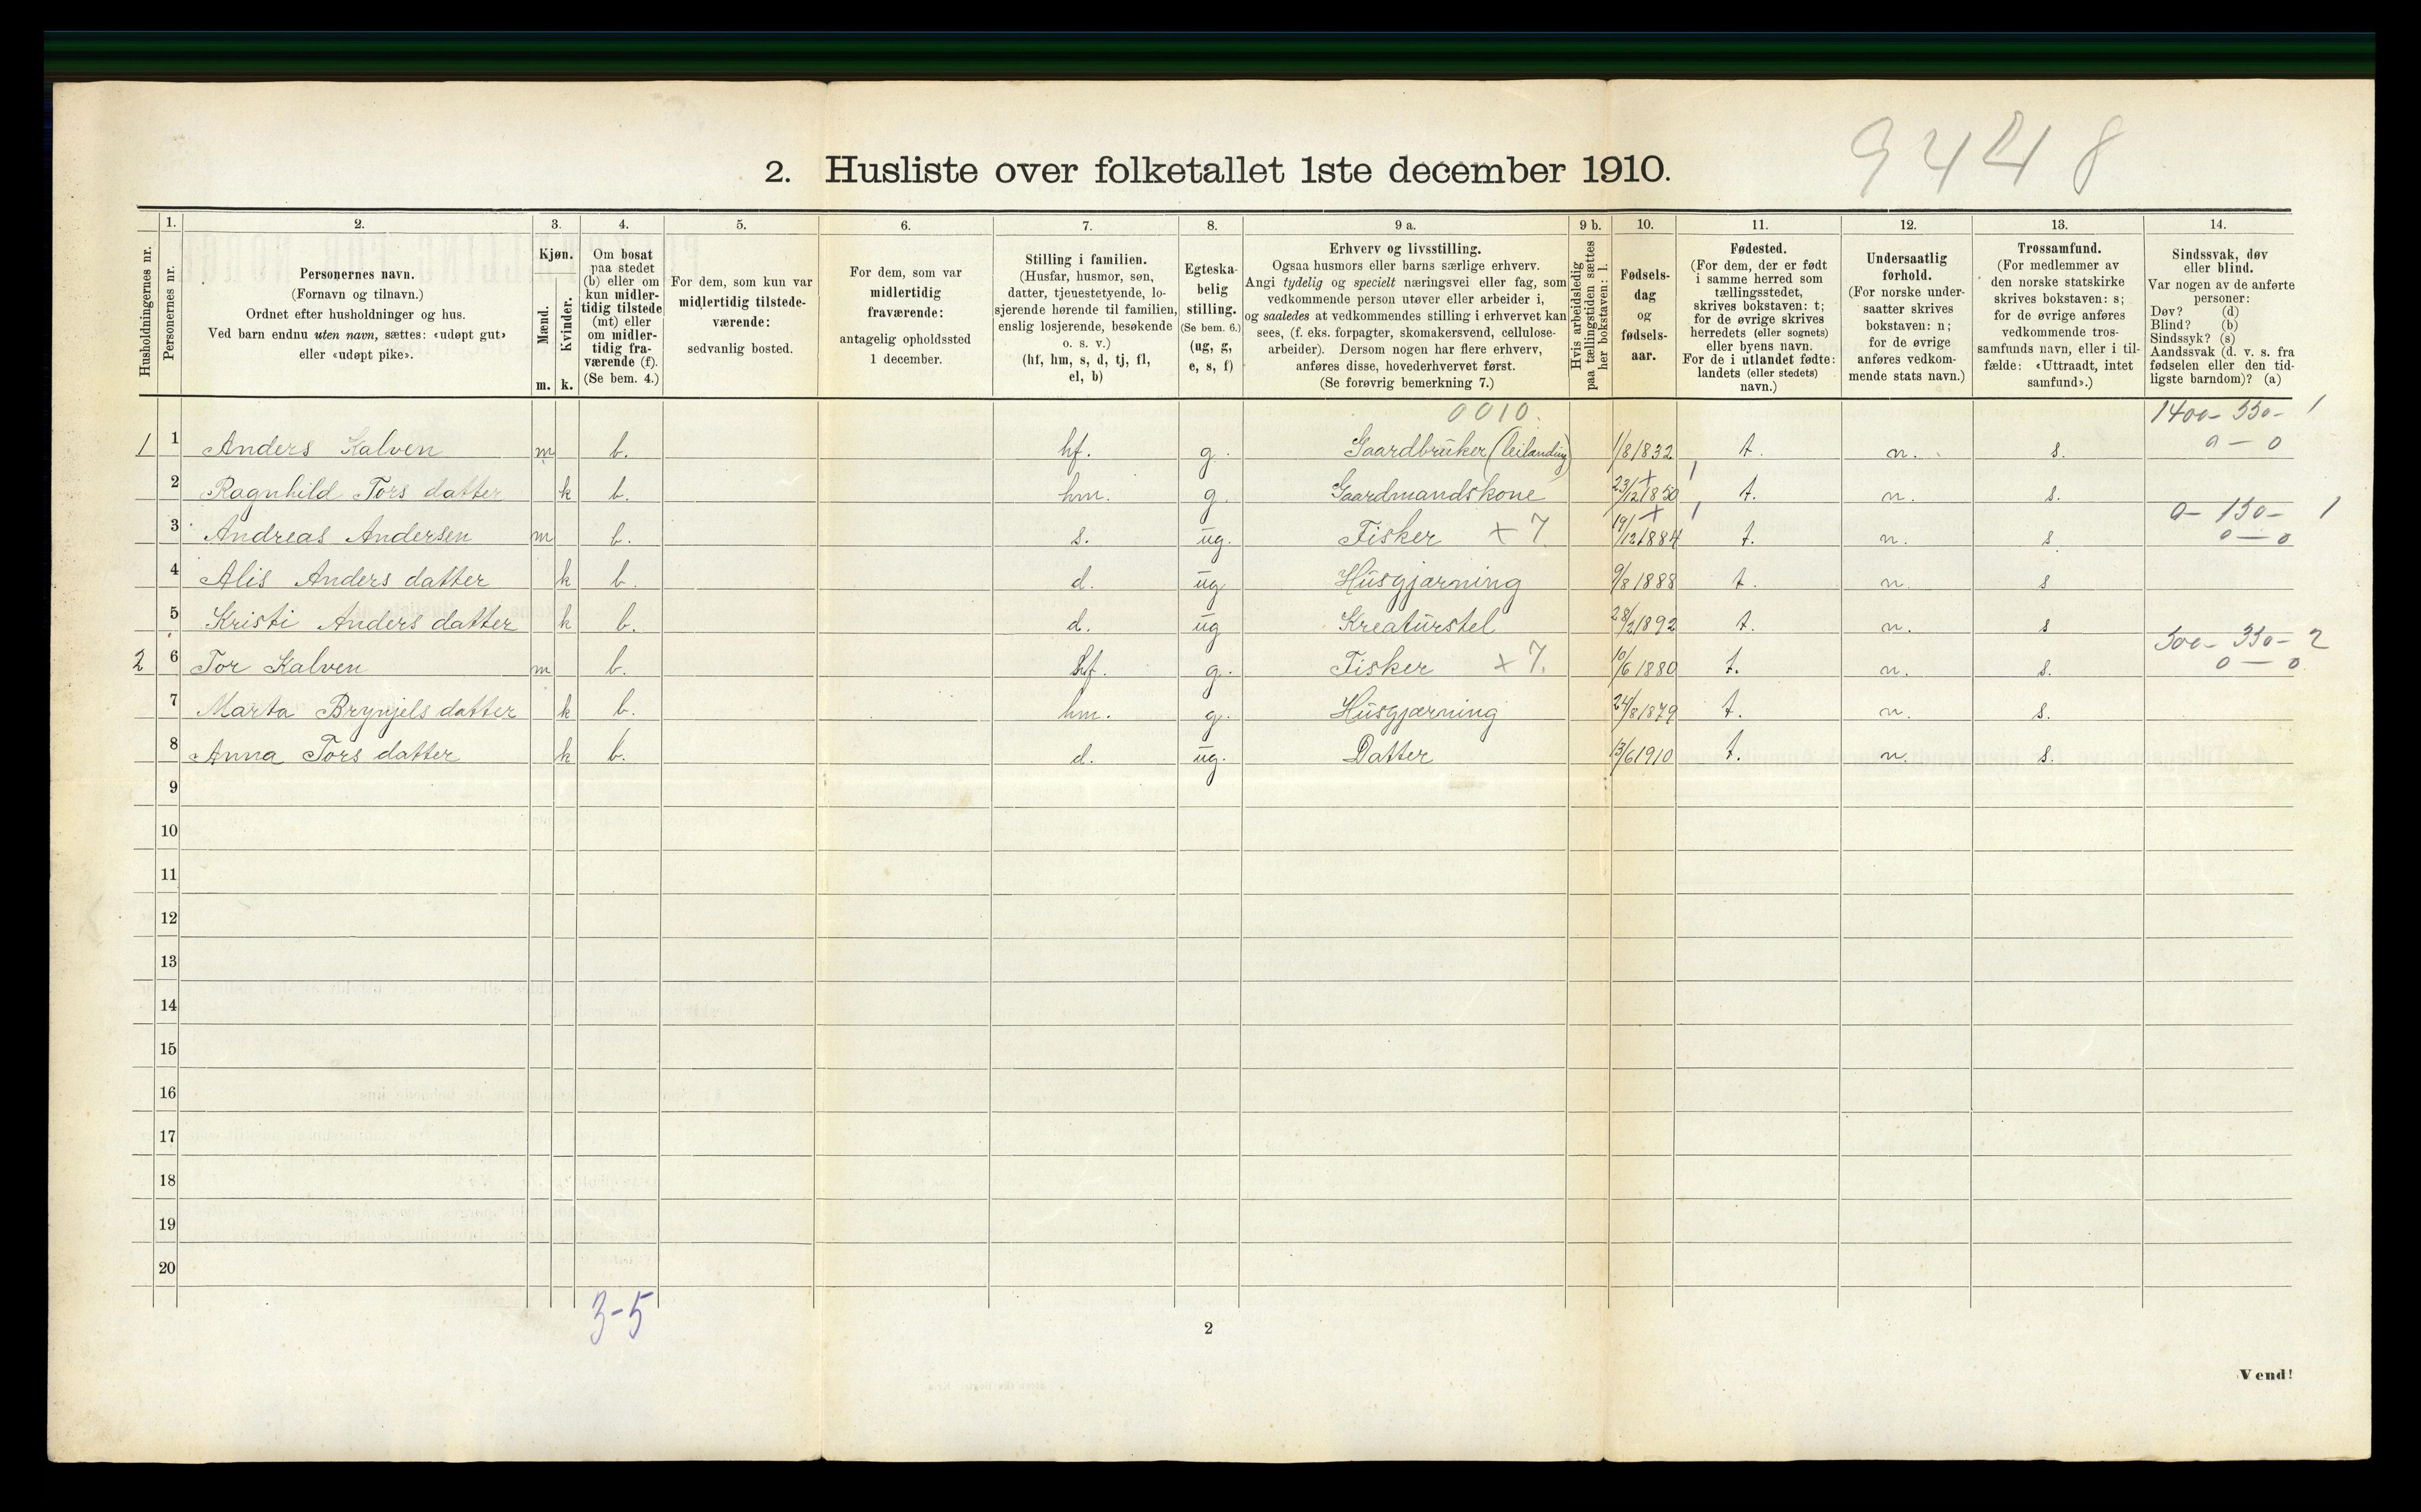 9448
2. Husliste over folketallet 1ste december 1910.
Husholdningernes nr.
1.
Personernes nr.
2.
Personernes navn.
(Fornavn og tilnavn.)
Ordnet efter husholdninger og hus.
Ved barn endnu uten navn, sættes: «udøpt gut»
eller «udøpt pike».
3.
Kjøn.
Mænd.
Kvinder.
m. k.
4.
Om bosat
paa stedet
(b) eller om
kun midler-
tidig tilstede
(mt) eller
om midler-
tidig fra-
værende (f).
(Se bem. 4.)
5.
For dem, som kun var
midlertidig tilstede-
værende:
sedvanlig bosted.
6.
For dem, som var
midlertidig
fraværende:
antagelig opholdssted
1 december.
7.
Stilling i familien.
(Husfar, husmor, søn,
datter, tjenestetyende, lo-
sjerende hørende til familien,
enslig losjerende, besøkende
o. s. v.)
(hf, hm, s, d, tj, fl,
el, b)
8.
Egteska-
belig
stilling.
(Se bem. 6.)
(ug, g,
e, s, f)
9 a.
Erhverv og livsstilling.
Ogsaa husmors eller barns særlige erhverv.
Angi tydelig og specielt næringsvei eller fag, som
vedkommende person utøver eller arbeider i,
og saaledes at vedkommendes stilling i erhvervet kan
sees, (f. eks. forpagter, skomakersvend, cellulose-
arbeider). Dersom nogen har flere erhverv,
anføres disse, hovederhvervet først.
(Se forøvrig bemerkning 7.)
9 b.
Hvis arbeidsledig
paa tællingstiden sættes
her bokstaven: l.
10.
Fødsels-
dag
og
fødsels-
aar.
11.
Fødested.
(For dem, der er født
i samme herred som
tællingsstedet,
skrives bokstaven: t;
for de øvrige skrives
herredets (eller sognets)
eller byens navn.
For de i utlandet fødte:
landets (eller stedets)
navn.)
12.
Undersaatlig
forhold.
(For norske under-
saatter skrives
bokstaven: n;
for de øvrige
anføres vedkom-
mende stats navn.)
13.
Trossamfund.
(For medlemmer av
den norske statskirke
skrives bokstaven: s;
for de øvrige anføres
vedkommende tros-
samfunds navn, eller i til-
fælde: «Uttraadt, intet
samfund».)
14.
Sindssvak, døv
eller blind.
Var nogen av de anførte
personer:
Døv? (d)
Blind? (b)
Sindssyk? (s)
Aandssvak (d. v. s. fra
fødselen eller den tid-
ligste barndom)? (a)
0010. 1400- 350- 1
1 1 Anders Kalven m b. hf. g. Gaardbruker (leilending) 1/8 1832 t. n. s. 0 - 0
2 Ragnhild Tors datter k b. hm. g. Gaardmandskone 23/12 1850 t. n. s.
0- 150- 1
3 Andreas Andersen m b. s. ug. Fisker x 7 19/12 1884 t. n. s 0 - 0
4 Alis Anders datter k b. d. ug Husgjærning 9/8 1888 t. n. s
5 Kristi Anders datter k b. d. ug Kreaturstel 28/2 1892 t. n. s
500- 350- 2
2 6 Tor Kalven m b. hf. g. Fisker x 7. 10/6 1880 t. n. s. 0 - 0
7 Marta Brynjels datter k b. hm. g. Husgjærning 24/8 1879 t. n. s.
8 Anna Tors datter k b. d. ug. Datter 13/6 1910 t. n. s.
9
10
11
12
13
14
15
16
17
18
19
20
3-5
2
Vend!